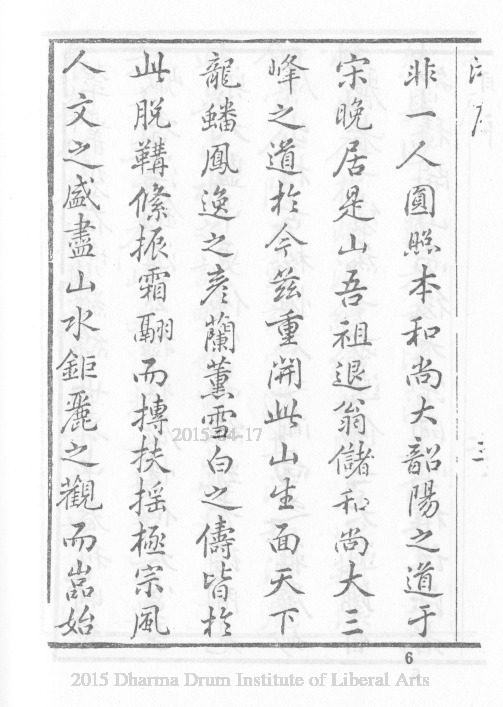 非一人圓照本和尚大韶陽之道于
宋晚居是山吾祖退翁儲和尚大三
峰之道於今茲重開此山生面天下
龍蟠鳳逸之彥蘭薰雪白之儔皆於
此脫鞲絛振霜翮而摶扶搖極宗風
人文之盛盡山水鉅麗之觀而嵓始
三
6
2015-04-17
2015 Dharma Drum Institute of Liberal Arts